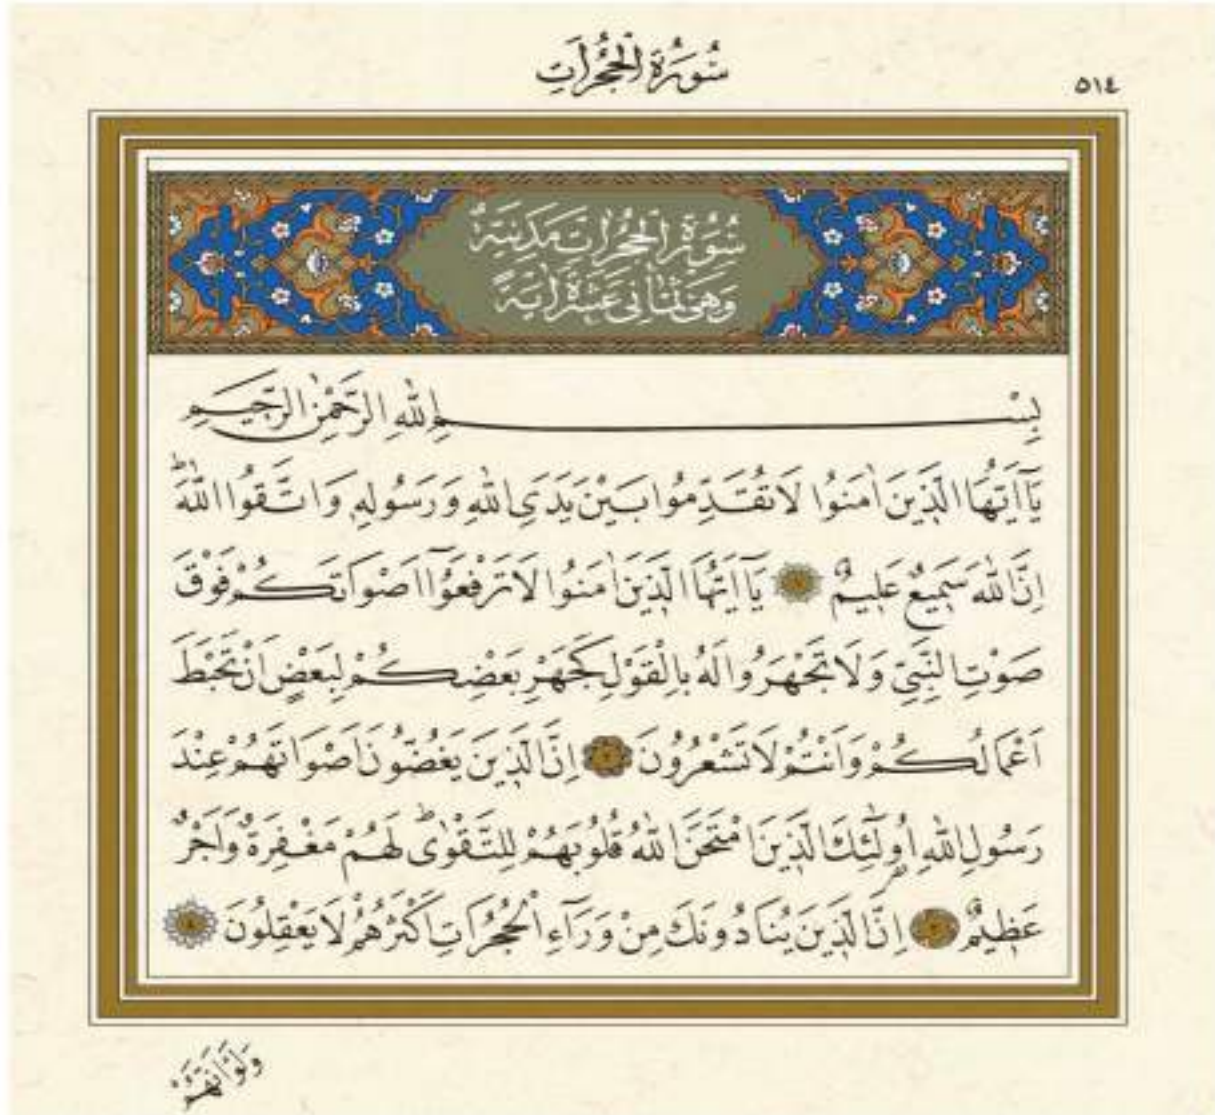 سُورَةُ الْحُجُرَاتِ
٥١٤
سُورَةُ الْحُجُرَاتِ مَدَنِيَّةٌ
وَهِيَ ثَمَانِي عَشْرَةَ اٰيَةً
بِسْمِ اللهِ الرَّحْمٰنِ الرَّحِيمِ
يَٓا اَيُّهَا الَّذِينَ اٰمَنُوا لَا تُقَدِّمُوا بَيْنَ يَدَيِ اللهِ وَرَسُولِهِ وَاتَّقُوا اللهَۜ
اِنَّ اللهَ سَمِيعٌ عَلِيمٌ ﴿١﴾ يَٓا اَيُّهَا الَّذِينَ اٰمَنُوا لَا تَرْفَعُٓوا اَصْوَاتَكُمْ فَوْقَ
صَوْتِ النَّبِيِّ وَلَا تَجْهَرُوا لَهُ بِالْقَوْلِ كَجَهْرِ بَعْضِكُمْ لِبَعْضٍ اَنْ تَحْبَطَ
اَعْمَالُكُمْ وَاَنْتُمْ لَا تَشْعُرُونَ ﴿٢﴾ اِنَّ الَّذِينَ يَغُضُّونَ اَصْوَاتَهُمْ عِنْدَ
رَسُولِ اللهِ اُو۬لٰٓئِكَ الَّذِينَ امْتَحَنَ اللهُ قُلُوبَهُمْ لِلتَّقْوٰىۜ لَهُمْ مَغْفِرَةٌ وَاَجْرٌ
عَظِيمٌ ﴿٣﴾ اِنَّ الَّذِينَ يُنَادُونَكَ مِنْ وَرَٓاءِ الْحُجُرَاتِ اَكْثَرُهُمْ لَا يَعْقِلُونَ ﴿٤﴾
وَلَوْ اَنَّهُمْ